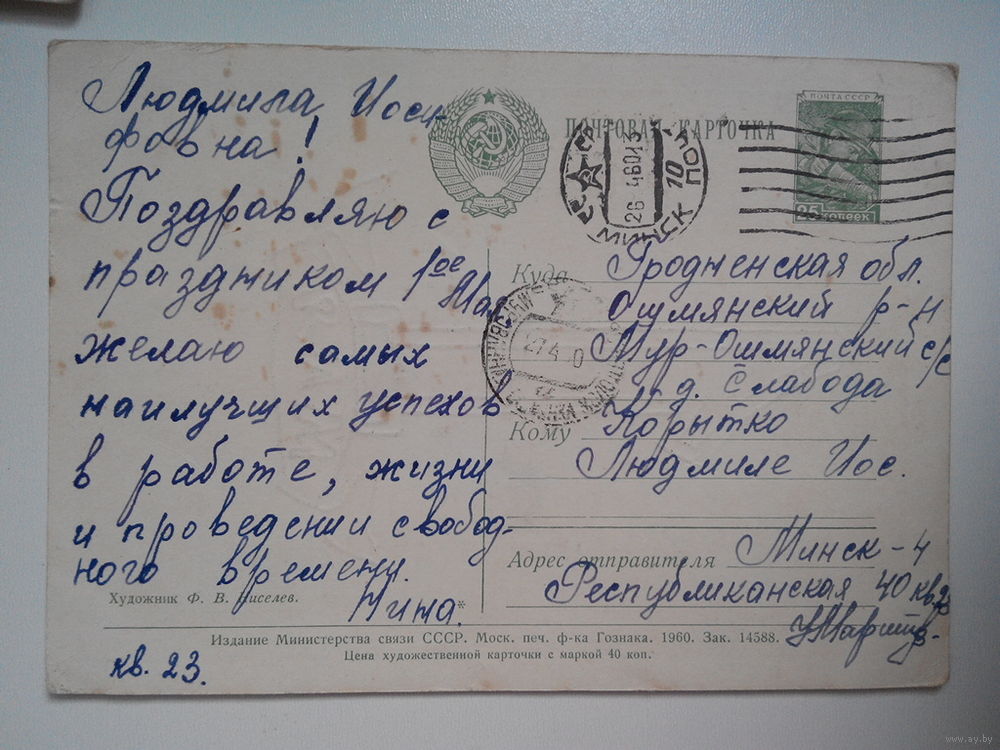 Людмила Иоси-
фовна!
Поздравляю с
праздником 1ое
Мая
желаю самых
наилучших успехов
в работе, жизни
и проведении свобод-
ного времени.
Нина.
кв. 23.
Художник Ф. В. Киселев.
ПОЧТОВАЯ КАРТОЧКА
ПОЧТА СССР
25 копеек
МИНСК 10 ПОЧ
26 4 60 13
27 4 0
Куда Гродненская обл.
Ошмянский р-н
Мур-Ошмянский с/с
д. Слабода
Кому Корытко
Людмиле Иос.
Адрес отправителя Минск-4
Республиканская 40 кв. 23
Издание Министерства связи СССР. Моск. печ. ф-ка Гознака. 1960. Зак. 14588.
Цена художественной карточки с маркой 40 коп.
www.ay.by